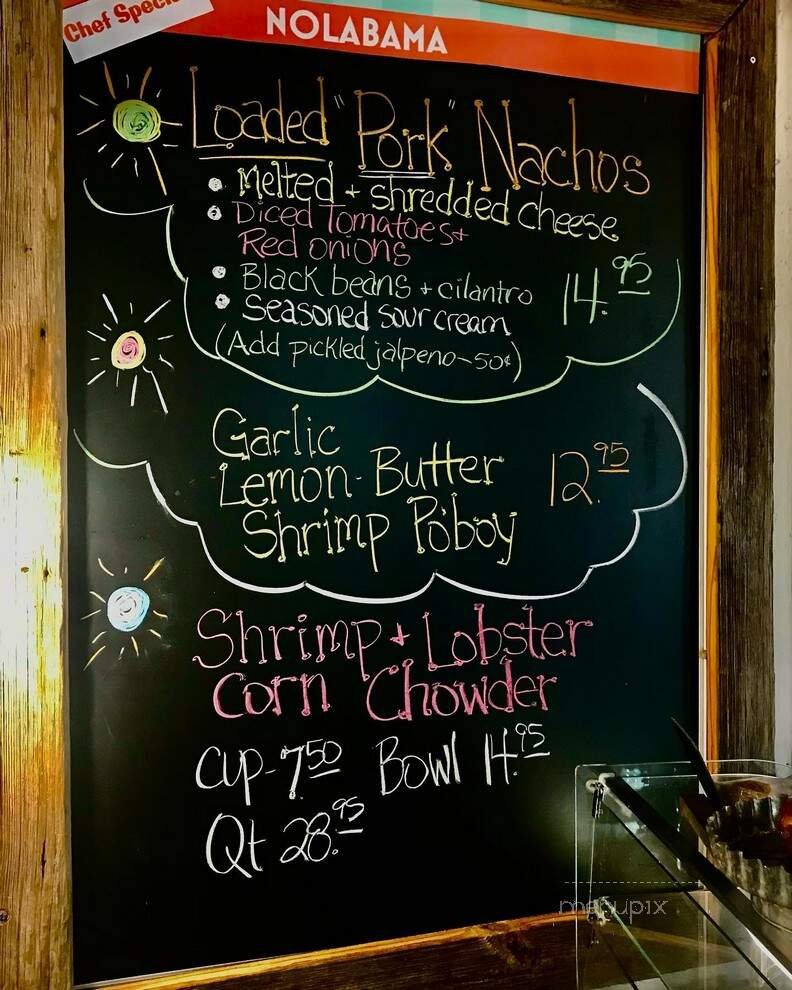 Chef Speci
NOLABAMA
Loaded "Pork" Nachos
• Melted + shredded cheese
• Diced Tomatoes +
Red onions
• Black beans + cilantro
• Seasoned sour cream
14.95
(Add pickled jalpeno-50¢)
Garlic
Lemon-Butter
Shrimp Poboy
12.95
Shrimp + Lobster
Corn Chowder
Cup-7.50 Bowl 14.95
Qt 28.95
menupix